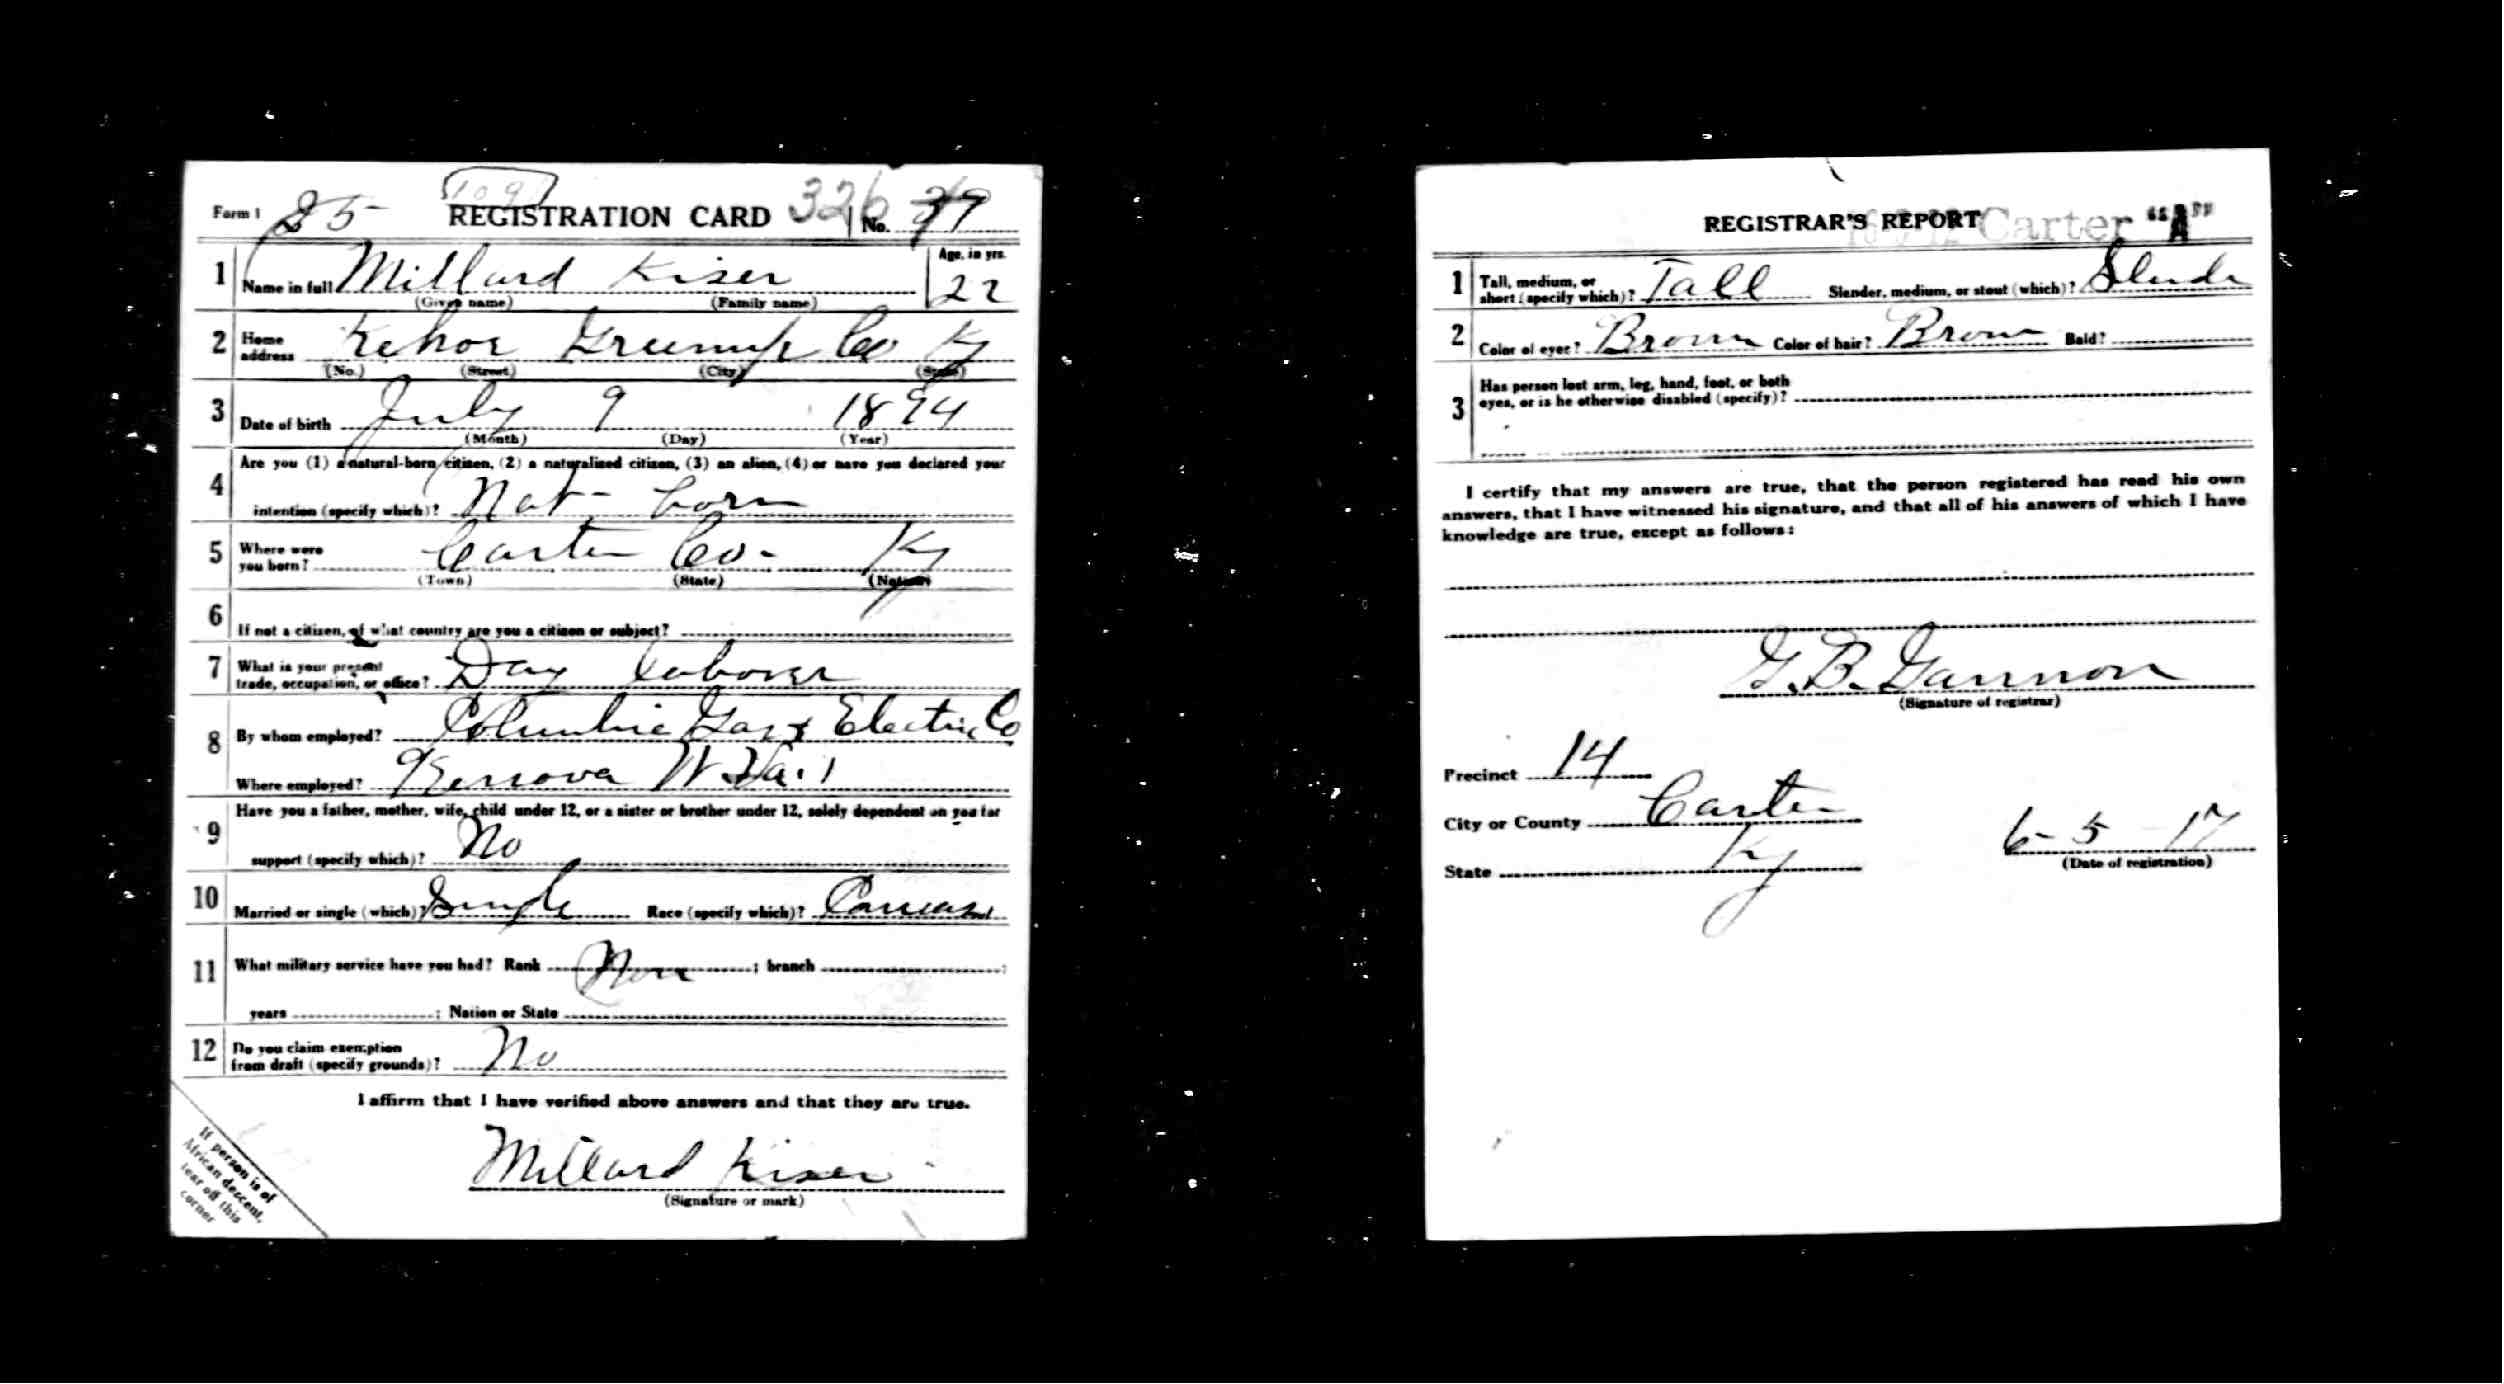 Form 1 25 109 REGISTRATION CARD 326 No. 39
1 Name in full Millard Kiser Age, in yrs. 22
(Given name) (Family name)
2 Home address Kehoe Greenup Co Ky
(No.) (Street) (City) (State)
3 Date of birth July 9 1894
(Month) (Day) (Year)
4 Are you (1) a natural-born citizen, (2) a naturalized citizen, (3) an alien, (4) or have you declared your
intention (specify which)? Nat- born
5 Where were you born? Carter Co- Ky
(Town) (State) (Nation)
6 If not a citizen, of what country are you a citizen or subject?
7 What is your present trade, occupation, or office? Day laborer
8 By whom employed? Columbia Gas & Electric Co
Where employed? Kenova W Va.
9 Have you a father, mother, wife, child under 12, or a sister or brother under 12, solely dependent on you for
support (specify which)? No
10 Married or single (which)? Single Race (specify which)? Caucasi
11 What military service have you had? Rank Non ; branch ;
years ; Nation or State
12 Do you claim exemption from draft (specify grounds)? No
I affirm that I have verified above answers and that they are true.
Millard Kiser
(Signature or mark)
If person is of
African descent,
tear off this
corner
REGISTRAR'S REPORT Carter "A"
1 Tall, medium, or short (specify which)? Tall Slender, medium, or stout (which)? Slender
2 Color of eyes? Brown Color of hair? Brown Bald?
3 Has person lost arm, leg, hand, foot, or both
eyes, or is he otherwise disabled (specify)?
I certify that my answers are true, that the person registered has read his own
answers, that I have witnessed his signature, and that all of his answers of which I have
knowledge are true, except as follows:
G. B. Gannon
(Signature of registrar)
Precinct 14
City or County Carter
State Ky
6-5-17
(Date of registration)